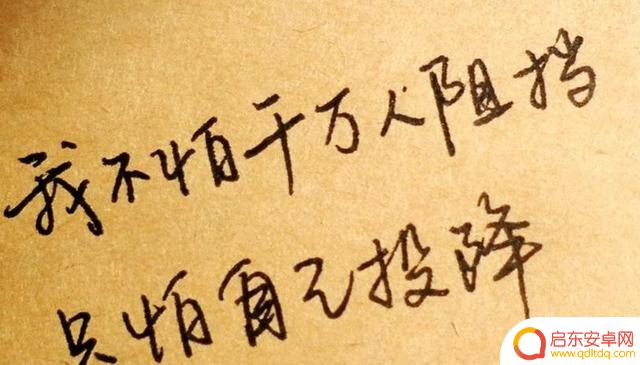 我不怕千万人阻挡
只怕自己投降
启东安卓网
www.qdltdtq.com